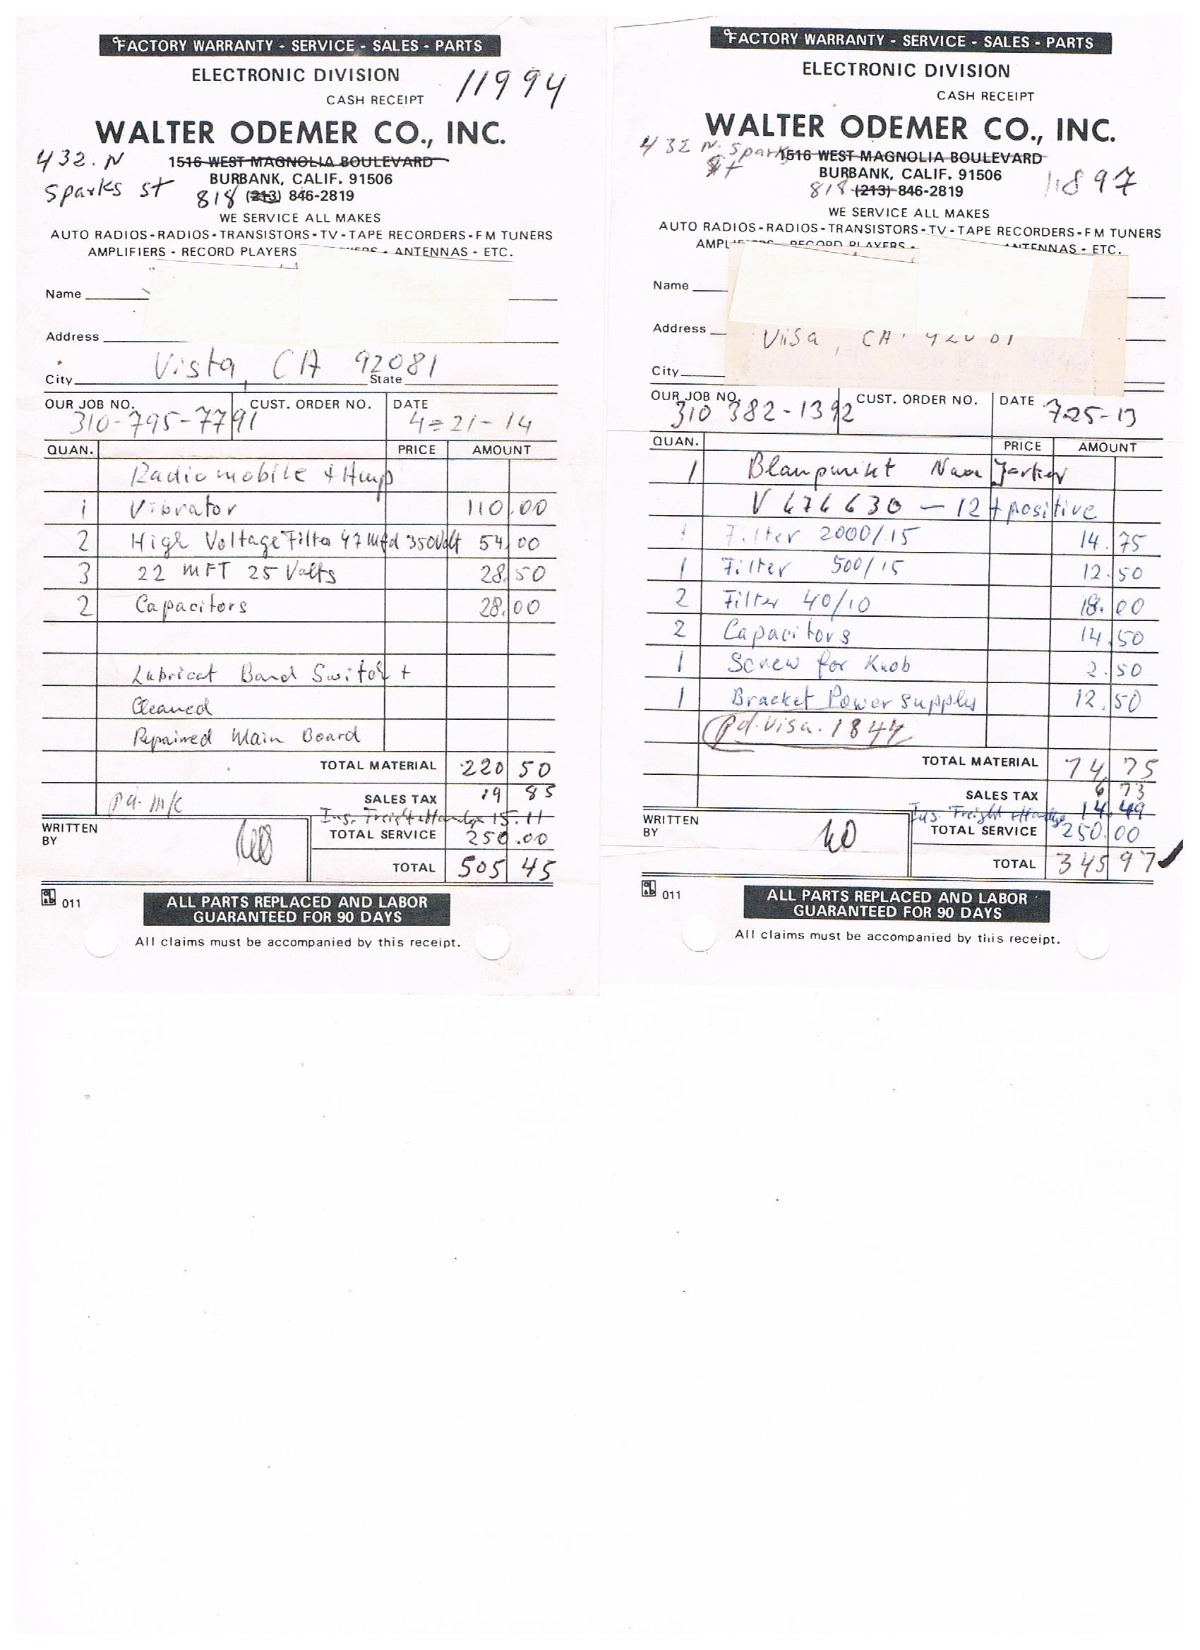 FACTORY WARRANTY - SERVICE - SALES - PARTS
ELECTRONIC DIVISION
CASH RECEIPT 11994
WALTER ODEMER CO., INC.
432. N 1516 WEST MAGNOLIA BOULEVARD
Sparks st BURBANK, CALIF. 91506
818 (213) 846-2819
WE SERVICE ALL MAKES
AUTO RADIOS - RADIOS - TRANSISTORS - TV - TAPE RECORDERS - FM TUNERS
AMPLIFIERS - RECORD PLAYERS - ANTENNAS - ETC.
Name
Address
Vista, CA 92081
City State
OUR JOB NO. CUST. ORDER NO. DATE
310-795-7791 4-21-14
QUAN. PRICE AMOUNT
Radiomobile +
1 Vibrator 110.00
2 High Voltage Filter 47 Mfd 350Volt 54.00
3 22 MFT 25 Volts 28.50
2 Capacitors 28.00
Lubricat Band Switch +
Cleaned
Repaired Main Board
TOTAL MATERIAL 220 50
Pd. M/C SALES TAX 19 85
Ins. Freight + Handlg 15.11
WRITTEN BY TOTAL SERVICE 250.00
TOTAL 505 45
011
ALL PARTS REPLACED AND LABOR
GUARANTEED FOR 90 DAYS
All claims must be accompanied by this receipt.
FACTORY WARRANTY - SERVICE - SALES - PARTS
ELECTRONIC DIVISION
CASH RECEIPT
WALTER ODEMER CO., INC.
432 N. Sparks 1516 WEST MAGNOLIA BOULEVARD
St BURBANK, CALIF. 91506
818 (213) 846-2819 11897
WE SERVICE ALL MAKES
AUTO RADIOS - RADIOS - TRANSISTORS - TV - TAPE RECORDERS - FM TUNERS
AMPLIFIERS - RECORD PLAYERS - ANTENNAS - ETC.
Name
Address
CA.
City
OUR JOB NO. CUST. ORDER NO. DATE
310 382-1392 7-25-13
QUAN. PRICE AMOUNT
1 Blaupunkt
V 676630 - 12 + positive
1 Filter 2000/15 14.75
1 Filter 500/15 12.50
2 Filter 40/10 18.00
2 Capacitors 14.50
1 Screw for Knob 2.50
1 Bracket Power supply 12.50
Pd. Visa. 1844
TOTAL MATERIAL 74 75
SALES TAX 6 73
Ins Freight + Handlg 14.49
WRITTEN BY TOTAL SERVICE 250.00
TOTAL 345 97
011
ALL PARTS REPLACED AND LABOR
GUARANTEED FOR 90 DAYS
All claims must be accompanied by this receipt.